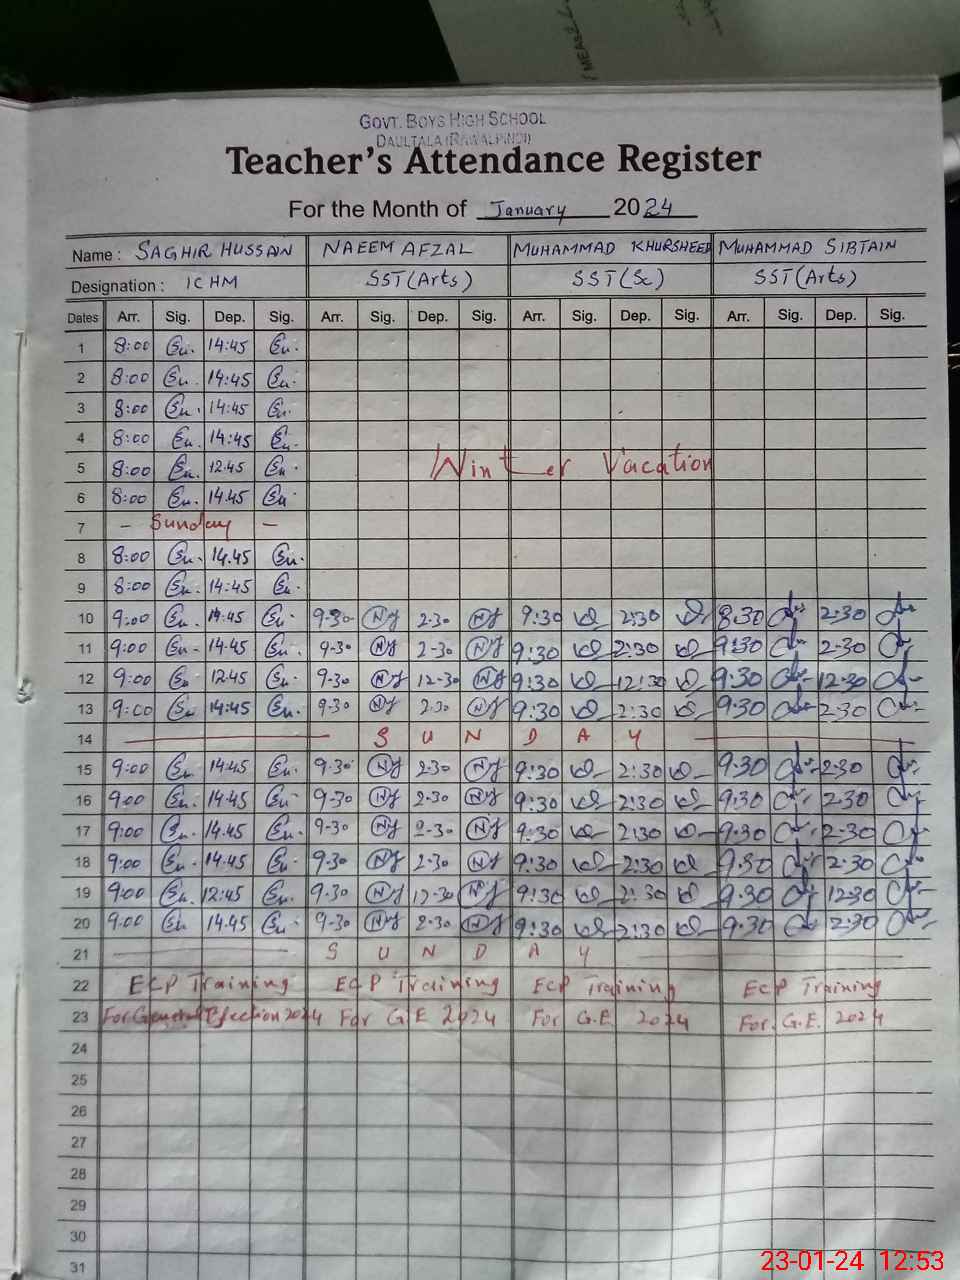 GOVT. BOYS HIGH SCHOOL
DAULTALA (RAWALPINDI)
Teacher's Attendance Register
For the Month of January 2024
Name : SAGHIR HUSSAIN NAEEM AFZAL MUHAMMAD KHURSHEED MUHAMMAD SIBTAIN
Designation : ICHM SST (Arts) SST (Sc) SST (Arts)
Dates Arr. Sig. Dep. Sig. Arr. Sig. Dep. Sig. Arr. Sig. Dep. Sig. Arr. Sig. Dep. Sig.
1 8:00 14:45
2 8:00 14:45
3 8:00 14:45
4 8:00 14:45
5 8:00 12.45 Winter Vacation
6 8:00 14.45
7 - Sunday -
8 8:00 14.45
9 8:00 14:45
10 9:00 14.45 9-30 2.30 9:30 2:30 8.30 2:30
11 9:00 14.45 9-30 2-30 9:30 2:30 9:30 2-30
12 9:00 12.45 9-30 12-30 9:30 12:30 9.30 12.30
13 9:00 14:45 9-30 2.30 9:30 2:30 9.30 2.30
14 SUNDAY
15 9:00 14:45 9.30 2.30 9:30 2:30 9.30 2.30
16 9:00 14.45 9-30 2.30 9:30 2:30 9.30 2.30
17 9:00 14.45 9-30 2-30 9:30 2:30 9.30 2.30
18 9:00 14.45 9-30 2.30 9:30 2:30 9.30 2.30
19 9:00 12:45 9.30 12-30 9:30 2:30 9.30 12.30
20 9:00 14.45 9-30 2.30 9:30 2:30 9.30 2:30
21 SUNDAY
22 ECP Training ECP Training ECP Training ECP Training
23 For General Election 2024 For G E 2024 For G.E. 2024 For G.E. 2024
24
25
26
27
28
29
30
31
23-01-24 12:53